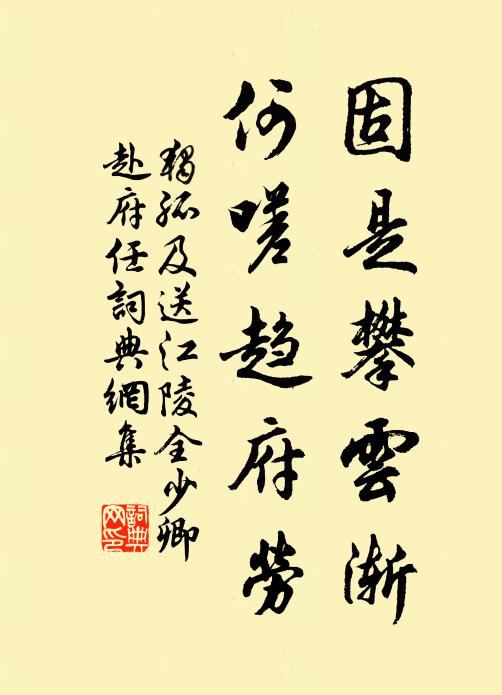 固是攀雲漸
何嗟趋府勞
獨孤及送江陵全少卿
赴府任詞典網集
詞典网印